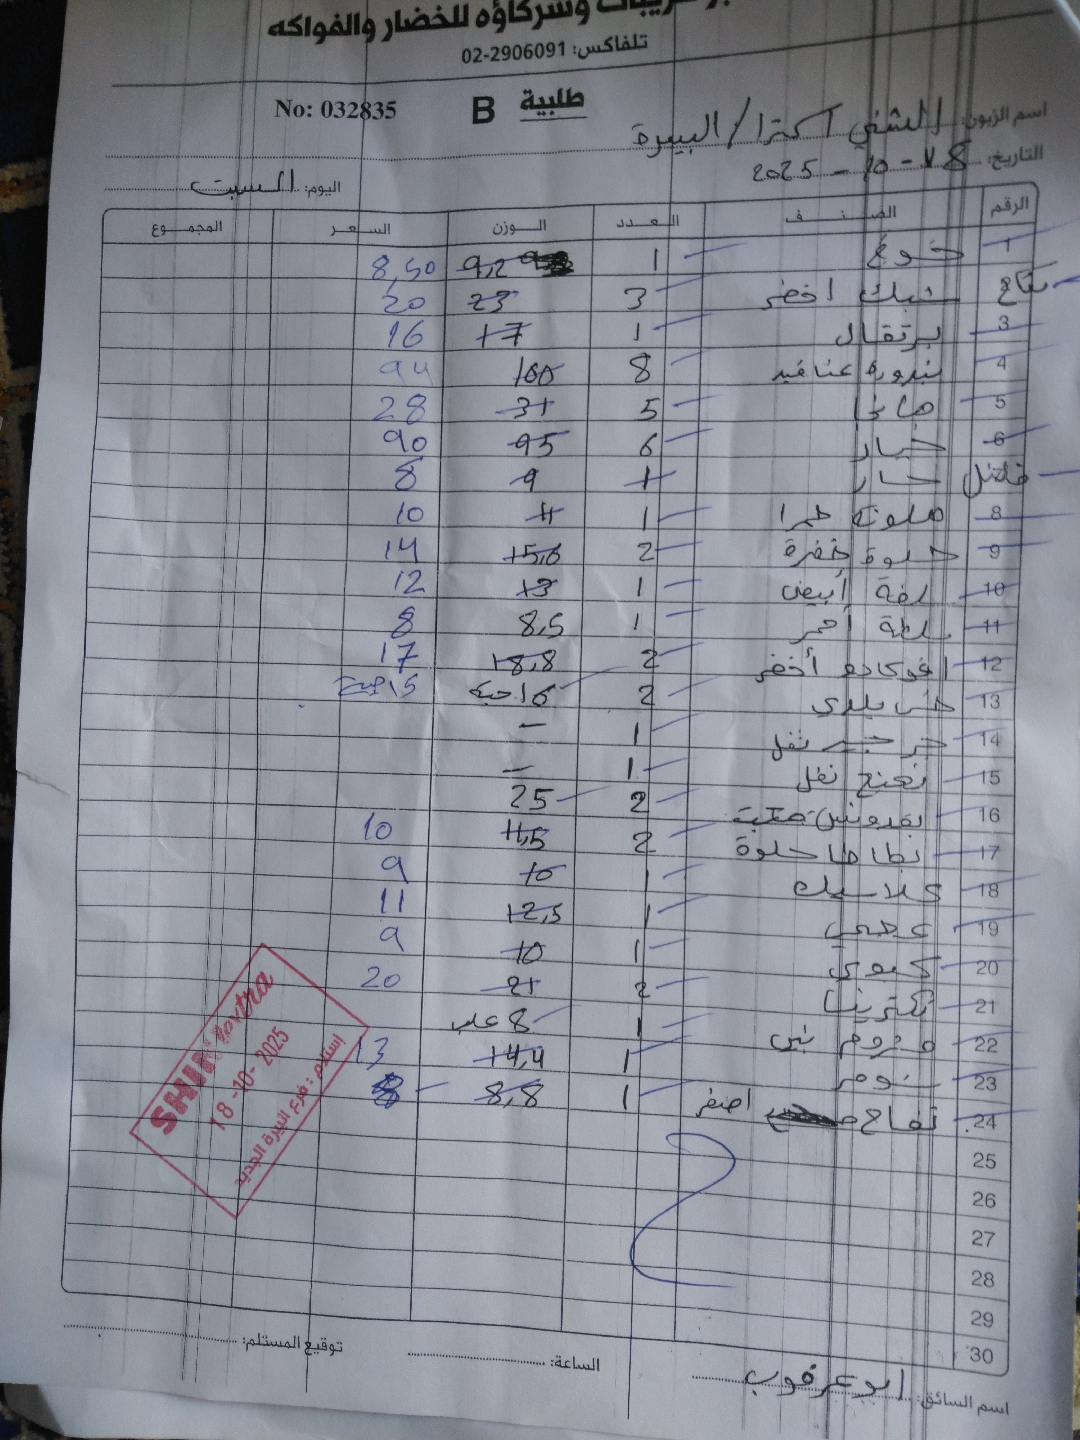 وشركاؤه للخضار والفواكه
تلفاكس: 02-2906091
طلبية B No: 032835
اسم الزبون: الشني اكسترا/البيرة
التاريخ: 18-10-2025 اليوم: السبت
الرقم الصنف العدد الوزن السعر المجموع
1 خوخ 1 9,2 8,50
2 تفاح سبك اخضر 3 23 20
3 برتقال 1 17 16
4 بندورة عناقيد 8 100 94
5 5 31 28
6 خيار 6 95 90
فلفل حار 1 9 8
8 حلوة حمرا 1 11 10
9 حلوة خضرة 2 15,6 14
10 أبيض 1 13 12
11 أحمر 1 8,5 8
12 افوكادو أخضر 2 18,8 17
13 خس بلدي 2 16 حبة 15 حبة
14 جرجير نفل 1 –
15 نعنع نفل 1 –
16 بقدونس 2 25
17 بطاطا حلوة 2 11,5 10
18 كلاسيك 1 10 9
19 عجمي 1 12,5 11
20 كيوي 1 10 9
21 نكترينا 2 21 20
22 مشروم بني 1 8 علب
23 بومر 1 14,4 13
24 تفاح اصفر 1 8,8 8
25
26
27
28
29
30
SHINI Extra
18-10-2025
استلام: فرع البيرة الجديد
توقيع المستلم: الساعة:
اسم السائق: ابو عرقوب